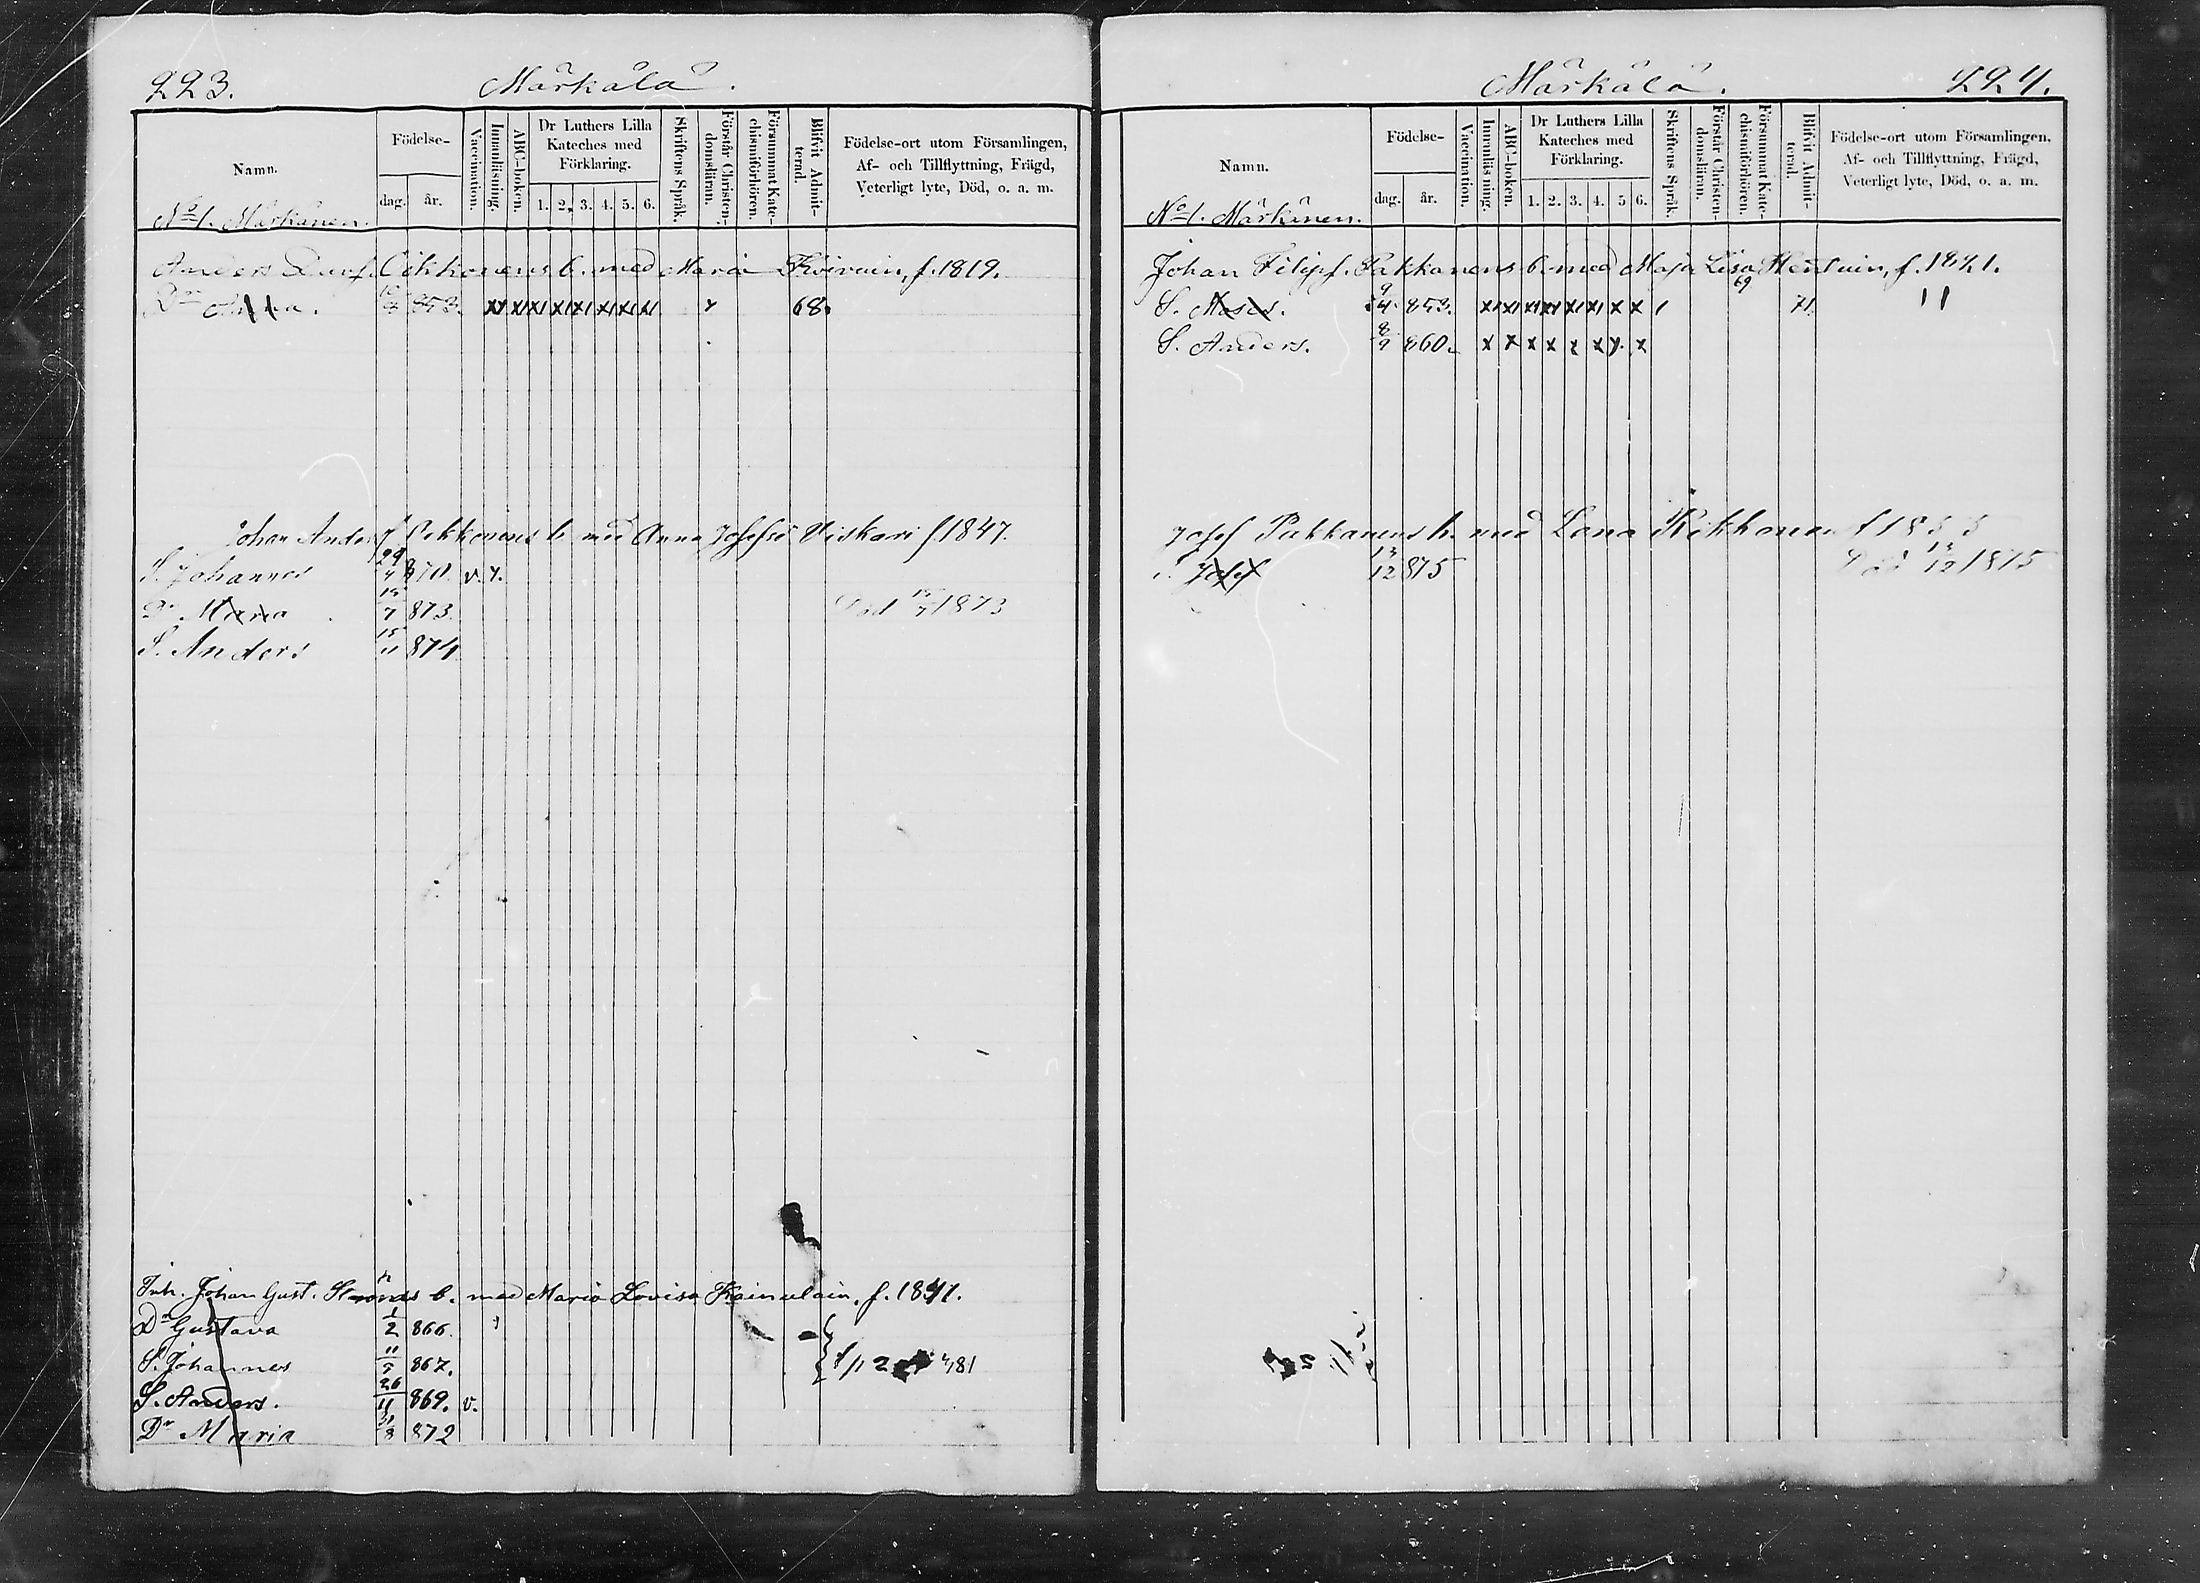 223. Märkälä.
Namn. Födelse- dag. år. Vaccination. Innanläsning. ABC-boken. Dr Luthers Lilla Kateches med Förklaring. 1. 2. 3. 4. 5. 6. Skriftens Språk. Förstår Christendomsläran. Försummat Katechismiförhören. Blifvit Admitterad. Födelse-ort utom Församlingen, Af- och Tillflyttning, Frägd, Veterligt lyte, Död, o. a. m.
No 1. Märkänen.
Anders b. med Maria Koivuin, f. 1819.
Dr Anna. 853. 68.
Johan Anders b med Anna Josefsd Viskari f 1847.
S. Johannes 29/4 870. v.
Dr Maria 15/7 873. Död 15/7 1873
S. Anders 15/11 874
Inh. Johan Gust. b. med Maria Lovisa Kainulain, f. 1841.
Dr Gustava 1/2 866.
S. Johannes 11/9 867. 81
S. Anders. 26/11 869. v.
Dr Maria 31/3 872
Märkälä. 224.
Namn. Födelse- dag. år. Vaccination. Innanläsning. ABC-boken. Dr Luthers Lilla Kateches med Förklaring. 1. 2. 3. 4. 5 6. Skriftens Språk. Förstår Christendomsläran. Försummat Katechismiförhören. Blifvit Admitterad. Födelse-ort utom Församlingen, Af- och Tillflyttning, Frägd, Veterligt lyte, Död, o. a. m.
No 1. Märkänen.
Johan Filipf. Pakkanens b. med Maja Lisa f. 1821.
S. Moses. 9/4 853. 69 71.
S. Anders. 8/9 860.
Josef Pakkanens h. med Lena Rikkonen f 1853
S. Josef 13/12 875 Död 13/12 1875